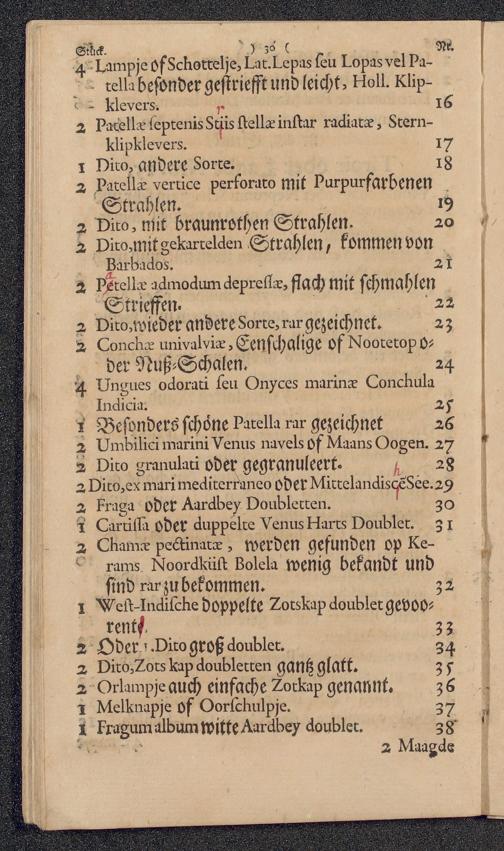 Stück. ) 30 ( Nr.
4 Lampje of Schottelje, Lat. Lepas seu Lopas vel Pa-
tella besonder gestriefft und leicht, Holl. Klip-
klevers. 16
2 Patellæ septenis Striis stellæ instar radiatæ, Stern-
klipklevers. 17
1 Dito, andere Sorte. 18
2 Patellæ vertice perforato mit Purpurfarbenen
Strahlen. 19
2 Dito, mit braunrothen Strahlen. 20
2 Dito, mit gekartelden Strahlen, kommen von
Barbados. 21
2 Patellæ admodum depressæ, flach mit schmahlen
Strieffen. 22
2 Dito, wieder andere Sorte, rar gezeichnet. 23
2 Conchæ univalviæ, Eenschalige of Nootetop o-
der Nuß-Schalen. 24
4 Ungues odorati seu Onyces marinæ Conchula
Indicia. 25
1 Besonders schöne Patella rar gezeichnet 26
2 Umbilici marini Venus navels of Maans Oogen. 27
2 Dito granulati oder gegranuleert. 28
2 Dito, ex mari mediterraneo oder Mittelandischē See. 29
2 Fraga oder Aardbey Doubletten. 30
1 Cartissa oder duppelte Venus Harts Doublet. 31
2 Chamæ pectinatæ, werden gefunden op Ke-
rams Noordküst Bolela wenig bekandt und
sind rar zu bekommen. 32
1 West-Indische doppelte Zotskap doublet gevoo-
rent. 33
2 Oder 1. Dito groß doublet. 34
2 Dito, Zots kap doubletten gantz glatt. 35
2 Orlampje auch einfache Zotkap genannt. 36
1 Melknapje of Oorschulpje. 37
1 Fragum album witte Aardbey doublet. 38
2 Maagde